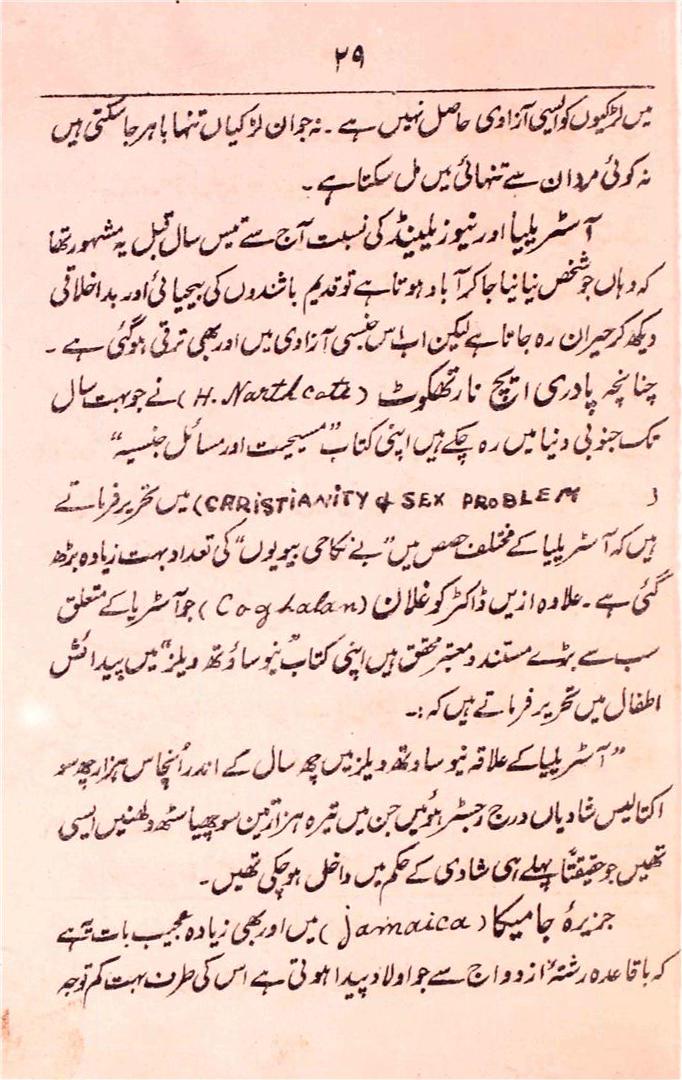 ۲۹
میں لڑکیوں کو ایسی آزادی حاصل نہیں ہے ۔ نہ جوان لڑکیاں تنہا باہر جاسکتی ہیں
نہ کوئی مرد ان سے تنہائی میں مل سکتا ہے ۔
آسٹریلیا اور نیوزیلینڈ کی نسبت آج سے تیس سال قبل یہ مشہور تھا
کہ وہاں جو شخص نیا نیا جاکر آباد ہوتا ہے تو قدیم باشندوں کی بیحیائی اور بداخلاقی
دیکھ کر حیران رہ جاتا ہے لیکن اب اس جنسی آزادی میں اور بھی ترقی ہوگئی ہے ۔
چنانچہ پادری ایچ نارتھکوٹ (H. Narthcate) نے جو بہت سال
تک جنوبی دنیا میں رہ چکے ہیں اپنی کتاب ”مسیحیت اور مسائل جنسیہ“
(CARISTIANITY & SEX PROBLEM) میں تحریر فرماتے
ہیں کہ آسٹریلیا کے مختلف حصص میں ”بے نکاحی بیویوں“ کی تعداد بہت زیادہ بڑھ
گئی ہے ۔ علاوہ ازیں ڈاکٹر کوغلان (Coghalan) جو آسٹریا کے متعلق
سب سے بڑے مستند و معتبر محقق ہیں اپنی کتاب ”نیو ساؤتھ ویلز“ میں پیدائش
اطفال میں تحریر فرماتے ہیں کہ :۔
”آسٹریلیا کے علاقہ نیو ساوتھ ویلز میں چھ سال کے اندر اُنچاس ہزار چھ سو
اکتالیس شادیاں درج رجسٹر ہوئیں جن میں تیرہ ہزار تین سو چھیاسٹھ دلھنیں ایسی
تھیں جو حقیقتاً پہلے ہی شادی کے حکم میں داخل ہوچکی تھیں ۔
جزیرۂ جامیکا (Jamaica) میں اور بھی زیادہ عجیب بات یہ ہے
کہ باقاعدہ رشتۂ ازدواج سے جو اولاد پیدا ہوتی ہے اس کی طرف بہت کم توجہ